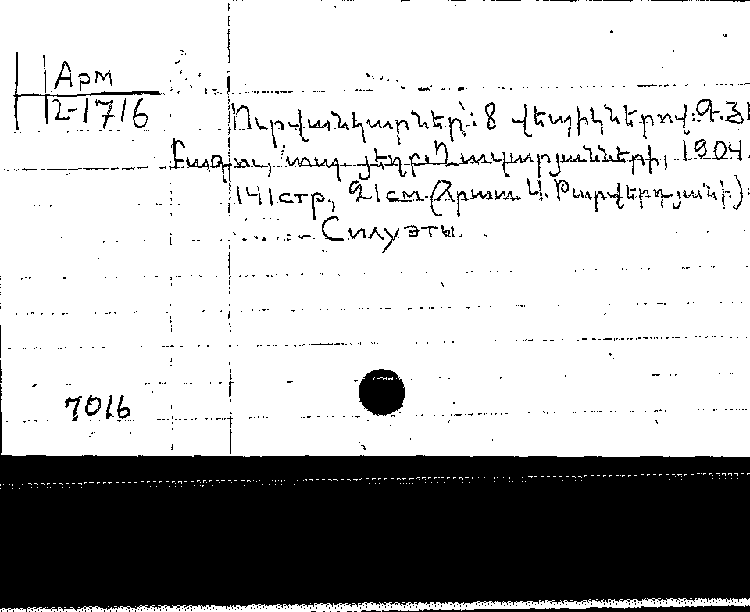 Арм
2-1716
Ուրվանկարներ: 8 վեպիկներով: Գ. Յ
Բագու, տպ. Եղբ. Ղազարյանների, 1904.
141 стр, 21 см (Հրատ. Պարվերդյանի)
Силуэты.
7016